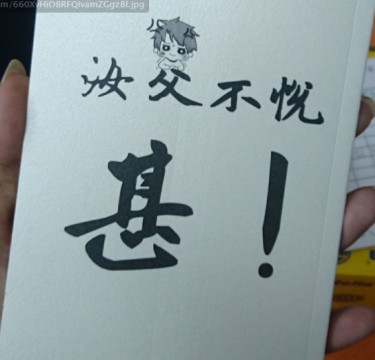 m/660XvHiO8RFQlvamZGgz8l.jpg
汝父不悦
甚!